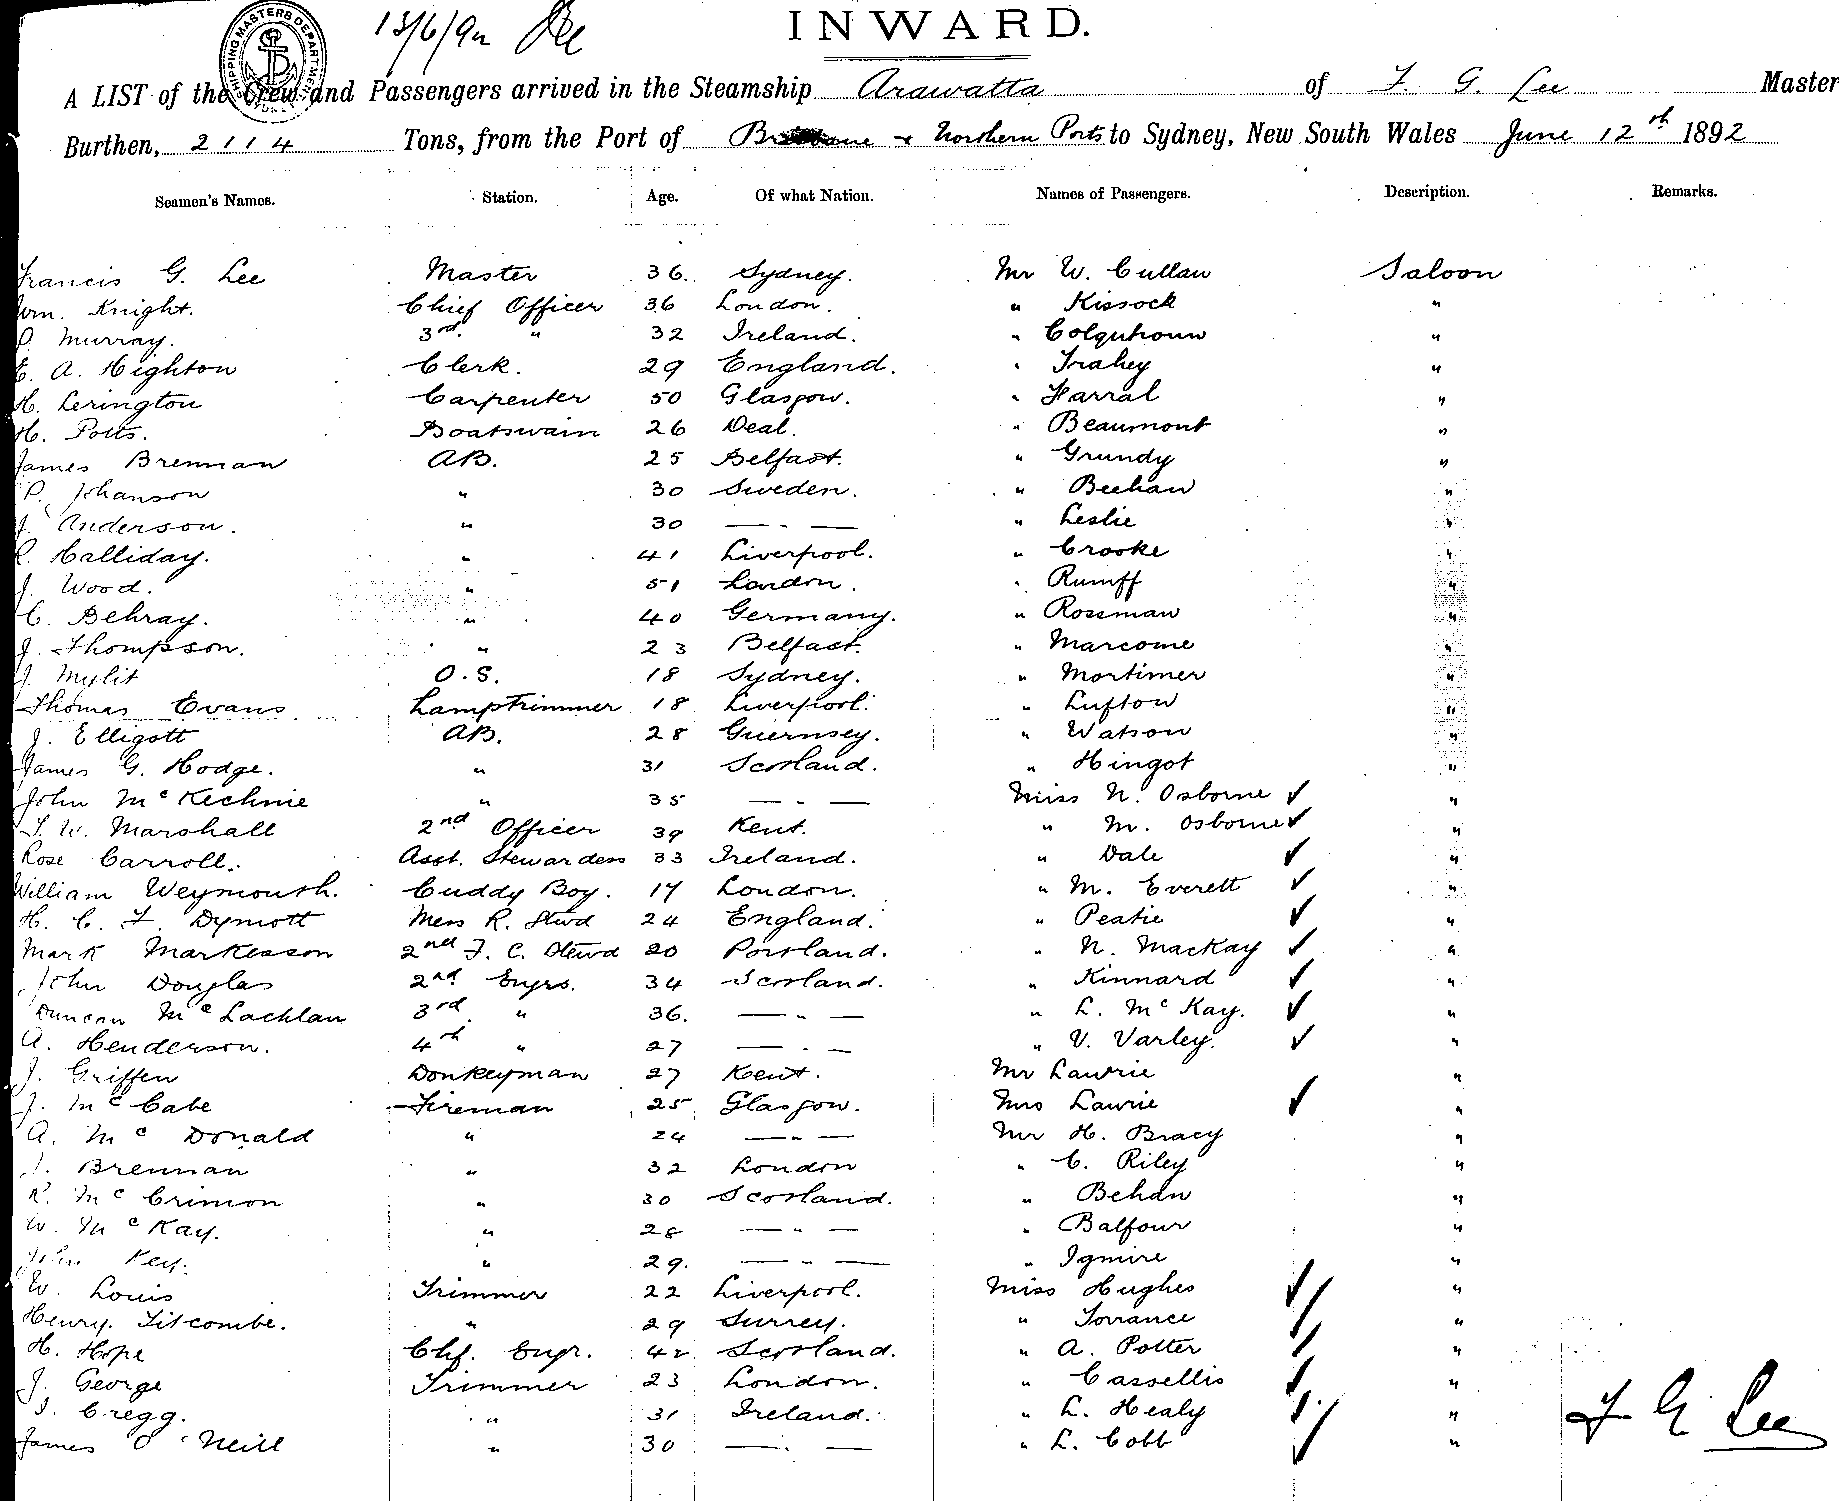 SHIPPING MASTERS DEPARTMENT
13/6/92
INWARD.
A LIST of the Crew and Passengers arrived in the Steamship Arawatta of F. G. Lee Master
Burthen, 2114 Tons, from the Port of Brisbane & Northern Ports to Sydney, New South Wales June 12th 1892
Seamen's Names. Station. Age. Of what Nation. Names of Passengers. Description. Remarks.
Francis G. Lee Master 36. Sydney. Mr W. Cullan Saloon
Wm. Knight. Chief Officer 36 London. " Kissock "
P. Murray. 3rd. " 32 Ireland. " Colquhoun "
E. A. Highton Clerk. 29 England. " Trahey "
H. Lerington Carpenter 50 Glasgow. " Harral "
H. Potts. Boatswain 26 Deal. " Beaumont "
James Brennan AB. 25 Belfast. " Grundy "
P. Johanson " 30 Sweden. " Beehan "
J. Anderson. " 30 — " — " Leslie "
Halliday. " 41 Liverpool. " Crooke "
J. Wood. " 51 London. " Rumff "
C. Behray. " 40 Germany. " Rossman "
J. Thompson. " 23 Belfast. " Marcome "
J. Mylit O.S. 18 Sydney. " Mortimer "
Thomas Evans Lamptrimmer 18 Liverpool. " Lufton "
J. Elligott AB. 28 Guernsey. " Watson "
James G. Hodge. " 31 Scotland. " Hingot "
John McKechnie " 35 — " — Miss N. Osborne ✓ "
T. W. Marshall 2nd Officer 39 Kent. " M. Osborne ✓ "
Rose Carroll. Asst. Stewardess 33 Ireland. " Dale ✓ "
William Weymouth. Cuddy Boy. 17 London. " M. Everett ✓ "
H. C. F. Dymott Mess R. Stwd 24 England. " Peatie ✓ "
Mark Markesson 2nd F. C. Stewd 20 Portland. " N. MacKay ✓ "
John Douglas 2nd Engrs. 34 Scotland. " Kinnard ✓ "
Duncan McLachlan 3rd " 36. — " — " L. McKay. ✓ "
A. Henderson. 4th " 27 — " — " V. Varley. ✓ "
J. Griffen Donkeyman 27 Kent. Mr Lawrie "
J. McCabe Fireman 25 Glasgow. Mrs Lawrie ✓ "
A. McDonald " 24 — " — Mr H. Bracy "
J. Brennan " 32 London " C. Riley "
R. McCrimon " 30 Scotland. " Behan "
W. McKay. " 28 — " — " Balfour "
John Key. " 29. — " — " Igmire "
W. Louis Trimmer 22 Liverpool. Miss Hughes ✓ "
Henry Titcombe. " 29 Surrey. " Torrance ✓ "
H. Hope Chf. Engr. 42 Scotland. " A. Potter ✓ "
J. George Trimmer 23 London. " Cassellis ✓ "
J. Cregg. " 31 Ireland. " L. Healy ✓ "
James O'Neill " 30 — " — " L. Cobb ✓ "
F G Lee